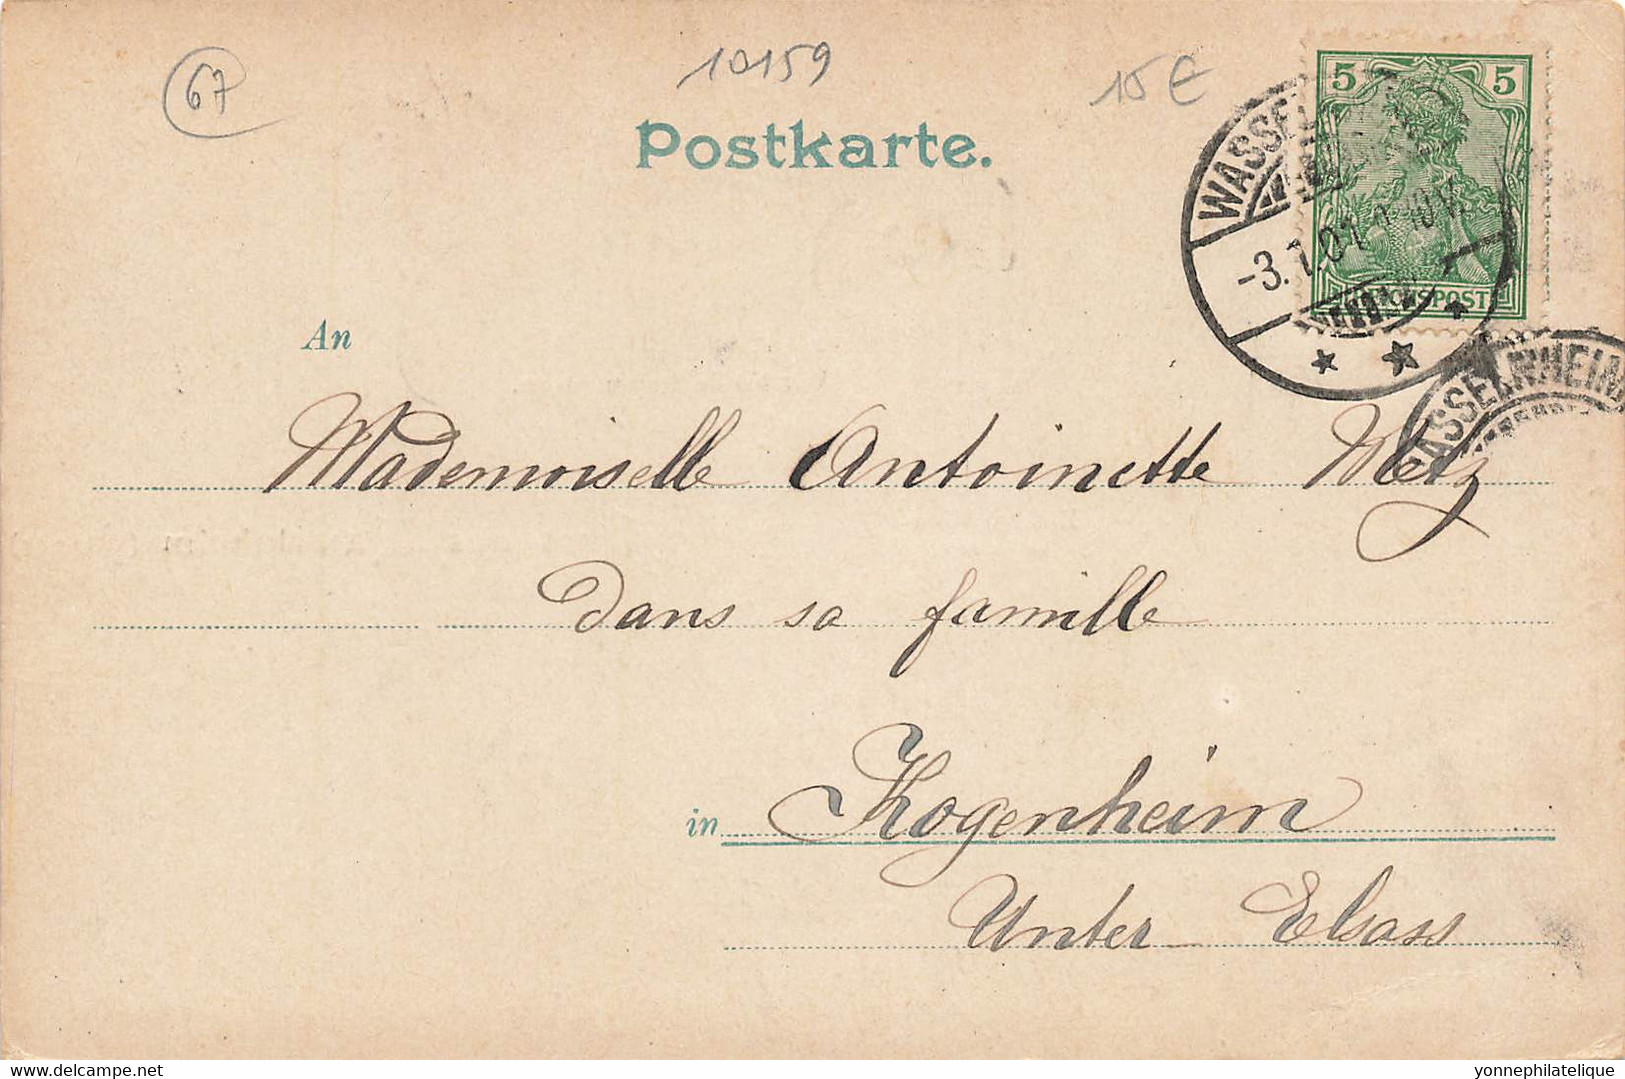 67
10159
15 €
Postkarte.
5 5
REICHSPOST
WASSEL
-3.1.01
ASSELNHEIM
An
Mademoiselle Antoinette Metz
dans sa famille
in Kogenheim
Unter Elsass
delcampe.net
yonnephilatelique